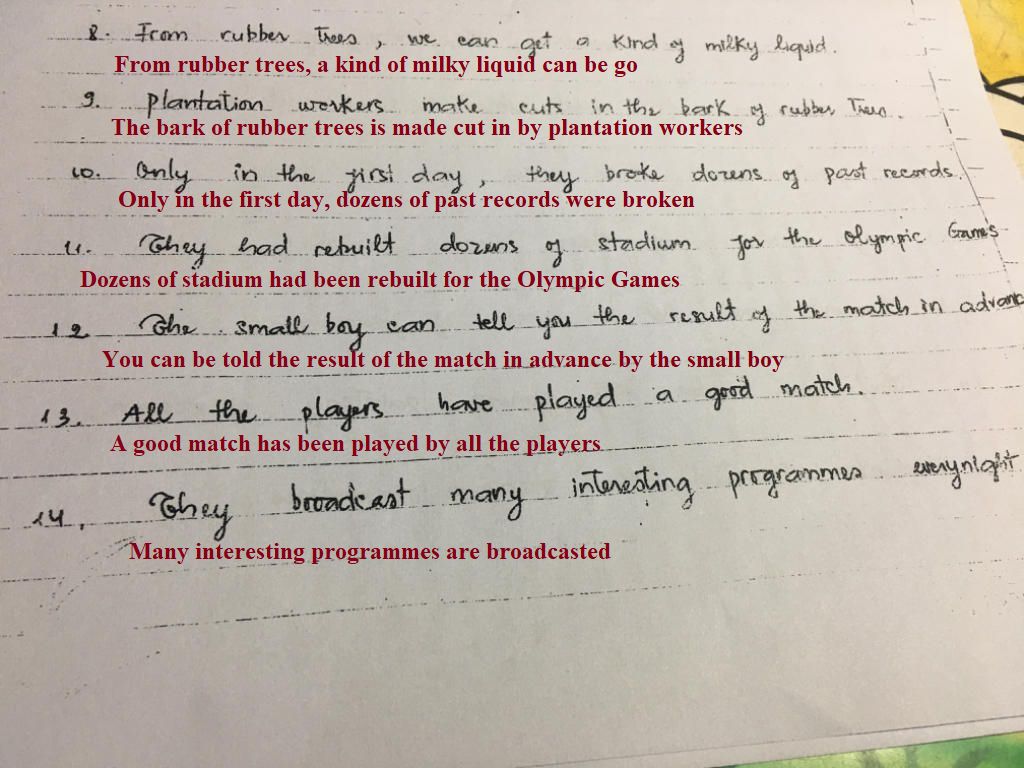 8. From rubber Trees, we can get a kind of milky liquid.
From rubber trees, a kind of milky liquid can be go
9. plantation workers make cuts in the bark of rubber Trees.
The bark of rubber trees is made cut in by plantation workers
10. Only in the first day, they broke dozens of past records.
Only in the first day, dozens of past records were broken
11. They had rebuilt dozens of stadium for the Olympic Games
Dozens of stadium had been rebuilt for the Olympic Games
12 The small boy can tell you the result of the match in advanc
You can be told the result of the match in advance by the small boy
13. All the players have played a good match.
A good match has been played by all the players
14. They broadcast many interesting programmes every night
Many interesting programmes are broadcasted